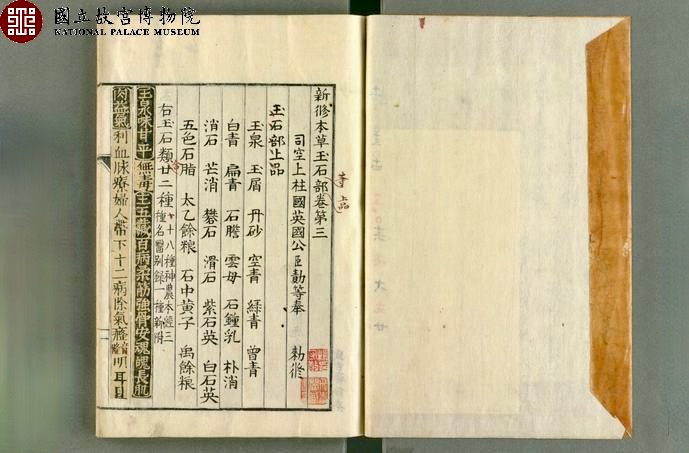 國立故宮博物院
NATIONAL PALACE MUSEUM
新修本草玉石部卷第三
等上品
司空上柱國英國公臣勣等奉 勅修
玉石部上品
玉泉 玉屑 丹砂 空青 綠青 曾青
白青 扁青 石膽 雲母 石鍾乳 朴消
消石 芒消 礬石 滑石 紫石英 白石英
五色石脂 太乙餘粮 石中黄子 禹餘粮
右玉石類廿二種
十八種神農本經三
種名醫别録一種新附
玉泉味甘平無毒主五藏百病柔筋強骨安魂魄長肌
肉益氣利血脉療婦人帶下十二病除氣癃明耳目